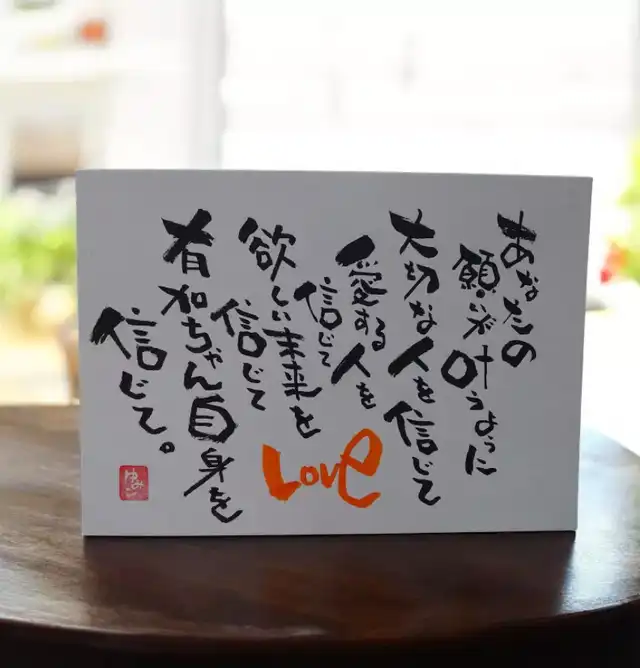 あなたの
願いが叶うように
大切な人を信じて
愛する人を
信じて
欲しい未来を
信じて
有加ちゃん自身を
信じて。
Love